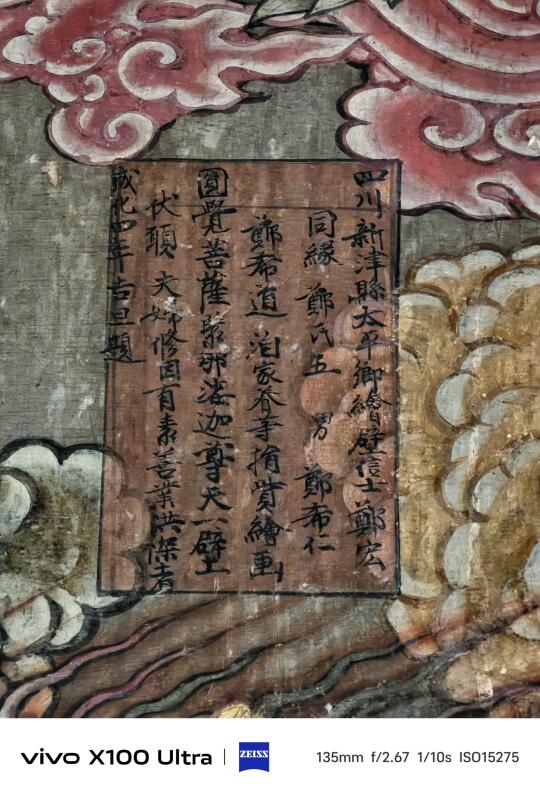 四川新津縣太平鄉繪壁信士鄭宏
同緣鄭氏五 男 鄭希仁
鄭希道洎家眷等捐貲繪画
圓覺菩薩緊那洛迦尊天一壁
伏願夫婦修因有素善業洪深者
成化四年吉旦題
vivo X100 Ultra
ZEISS
135mm f/2.67 1/10s ISO15275